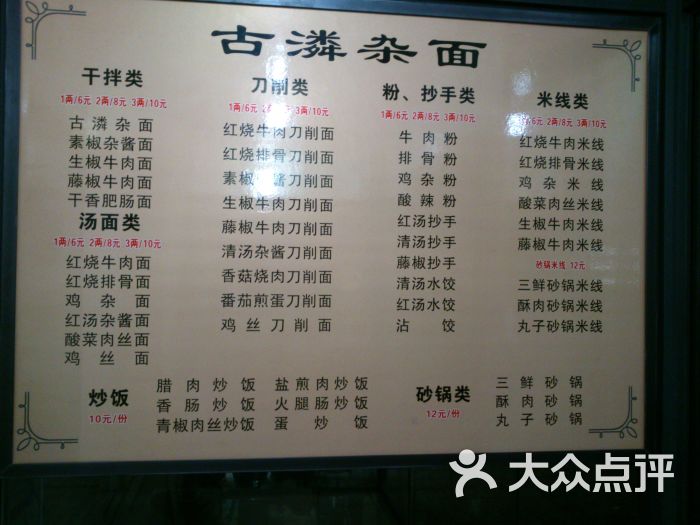 古潾杂面
干拌类
1两/6元 2两/8元 3两/10元
古潾杂面
素椒杂酱面
生椒牛肉面
藤椒牛肉面
干香肥肠面
汤面类
1两/6元 2两/8元 3两/10元
红烧牛肉面
红烧排骨面
鸡杂面
红汤杂酱面
酸菜肉丝面
鸡丝面
刀削类
1两/6元 2两/8元 3两/10元
红烧牛肉刀削面
红烧排骨刀削面
素椒杂酱刀削面
生椒牛肉刀削面
藤椒牛肉刀削面
清汤杂酱刀削面
香菇烧肉刀削面
番茄煎蛋刀削面
鸡丝刀削面
粉、抄手类
1两/6元 2两/8元 3两/10元
牛肉粉
排骨粉
鸡杂粉
酸辣粉
红汤抄手
清汤抄手
藤椒抄手
清汤水饺
红汤水饺
沾饺
米线类
1两/6元 2两/8元 3两/10元
红烧牛肉米线
红烧排骨米线
鸡杂米线
酸菜肉丝米线
生椒牛肉米线
藤椒牛肉米线
砂锅米线 12元
三鲜砂锅米线
酥肉砂锅米线
丸子砂锅米线
炒饭
10元/份
腊肉炒饭 盐煎肉炒饭
香肠炒饭 火腿肠炒饭
青椒肉丝炒饭 蛋炒饭
砂锅类
12元/份
三鲜砂锅
酥肉砂锅
丸子砂锅
大众点评